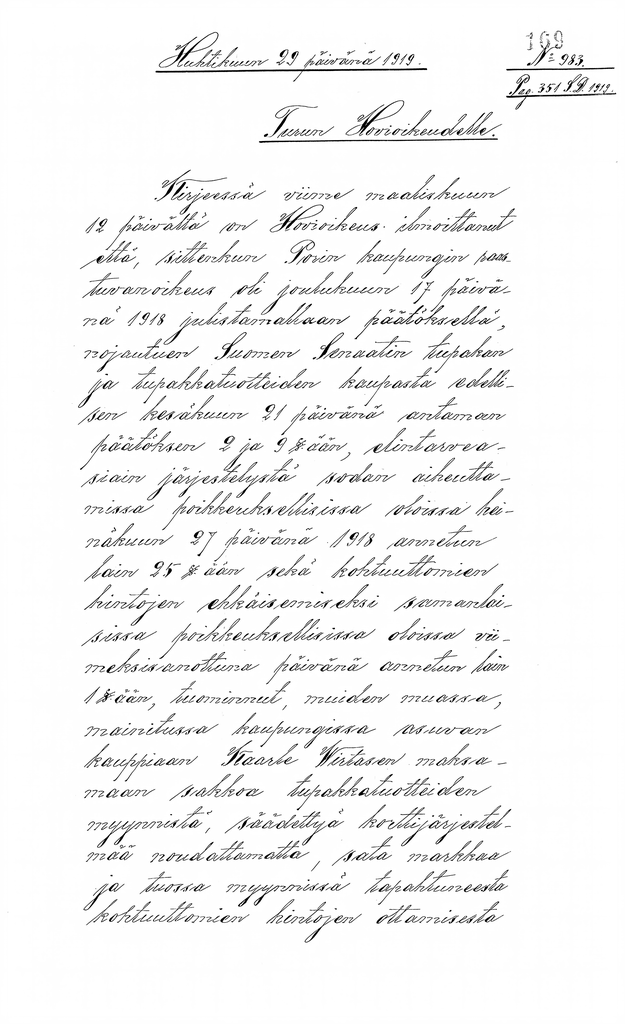 169
Huhtikuun 29 päivänä 1919.
No 983.
Pag. 351 S.D. 1919.
Turun Hovioikeudelle.
Kirjeessä viime maaliskuun
12 päivältä on Hovioikeus ilmoittanut
että, sittenkun Porin kaupungin raas-
tuvanoikeus oli joulukuun 17 päivä-
nä 1918 julistamallaan päätöksellä,
nojautuen Suomen Senaatin tupakan
ja tupakkatuotteiden kaupasta edelli-
sen kesäkuun 21 päivänä antaman
päätöksen 2 ja 9 §:ään, elintarvea-
siain järjestelystä sodan aiheutta-
missa poikkeuksellisissa oloissa hei-
näkuun 27 päivänä 1918 annetun
lain 25 §:ään sekä kohtuuttomien
hintojen ehkäisemiseksi samanlai-
sissa poikkeuksellisissa oloissa vii-
meksisanottuna päivänä annetun lain
1 §:ään, tuominnut, muiden muassa,
mainitussa kaupungissa asuvan
kauppiaan Kaarle Wirtasen maksa-
maan sakkoa tupakkatuotteiden
myynnistä, säädettyä korttijärjestel-
mää noudattamatta, sata markkaa
ja tuossa myynnissä tapahtuneesta
kohtuuttomien hintojen ottamisesta